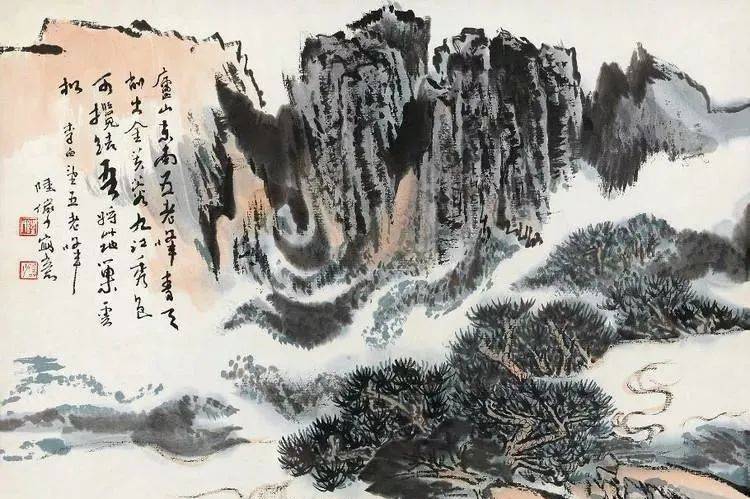 廬山東南五老峰青天
削出金芙蓉九江秀色
可攬結吾將此地巢雲
松 李白望五老峰
陸儼少寫意